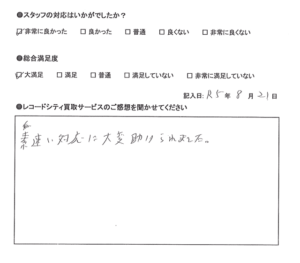 ●スタッフの対応はいかがでしたか？
☑非常に良かった □良かった □普通 □良くない □非常に良くない
●総合満足度
☑大満足 □満足 □普通 □満足していない □非常に満足していない
記入日: R5年 8月 21日
●レコードシティ買取サービスのご感想を聞かせてください
素速い対応に大変助けられました。